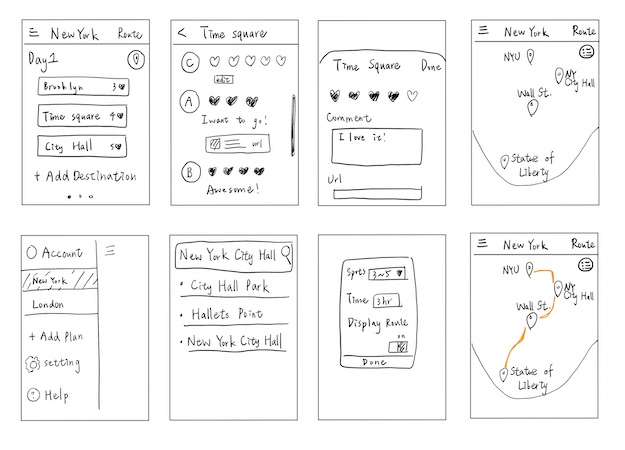 New York Route
Day1
Brooklyn 3
Time square 4
City Hall 5
+ Add Destination
< Time square
C
edit
A
I want to go!
url
B
Awesome!
Time Square Done
Comment
I love it!
Url
New York Route
NYU
NY
City Hall
Wall St.
Statue of
Liberty
Account
New York
London
+ Add Plan
setting
? Help
New York City Hall
• City Hall Park
• Hallets Point
• New York City Hall
3~5
Time 3hr
Display Route
on
Done
New York Route
NYU
NY
City Hall
Wall St.
Statue of
Liberty